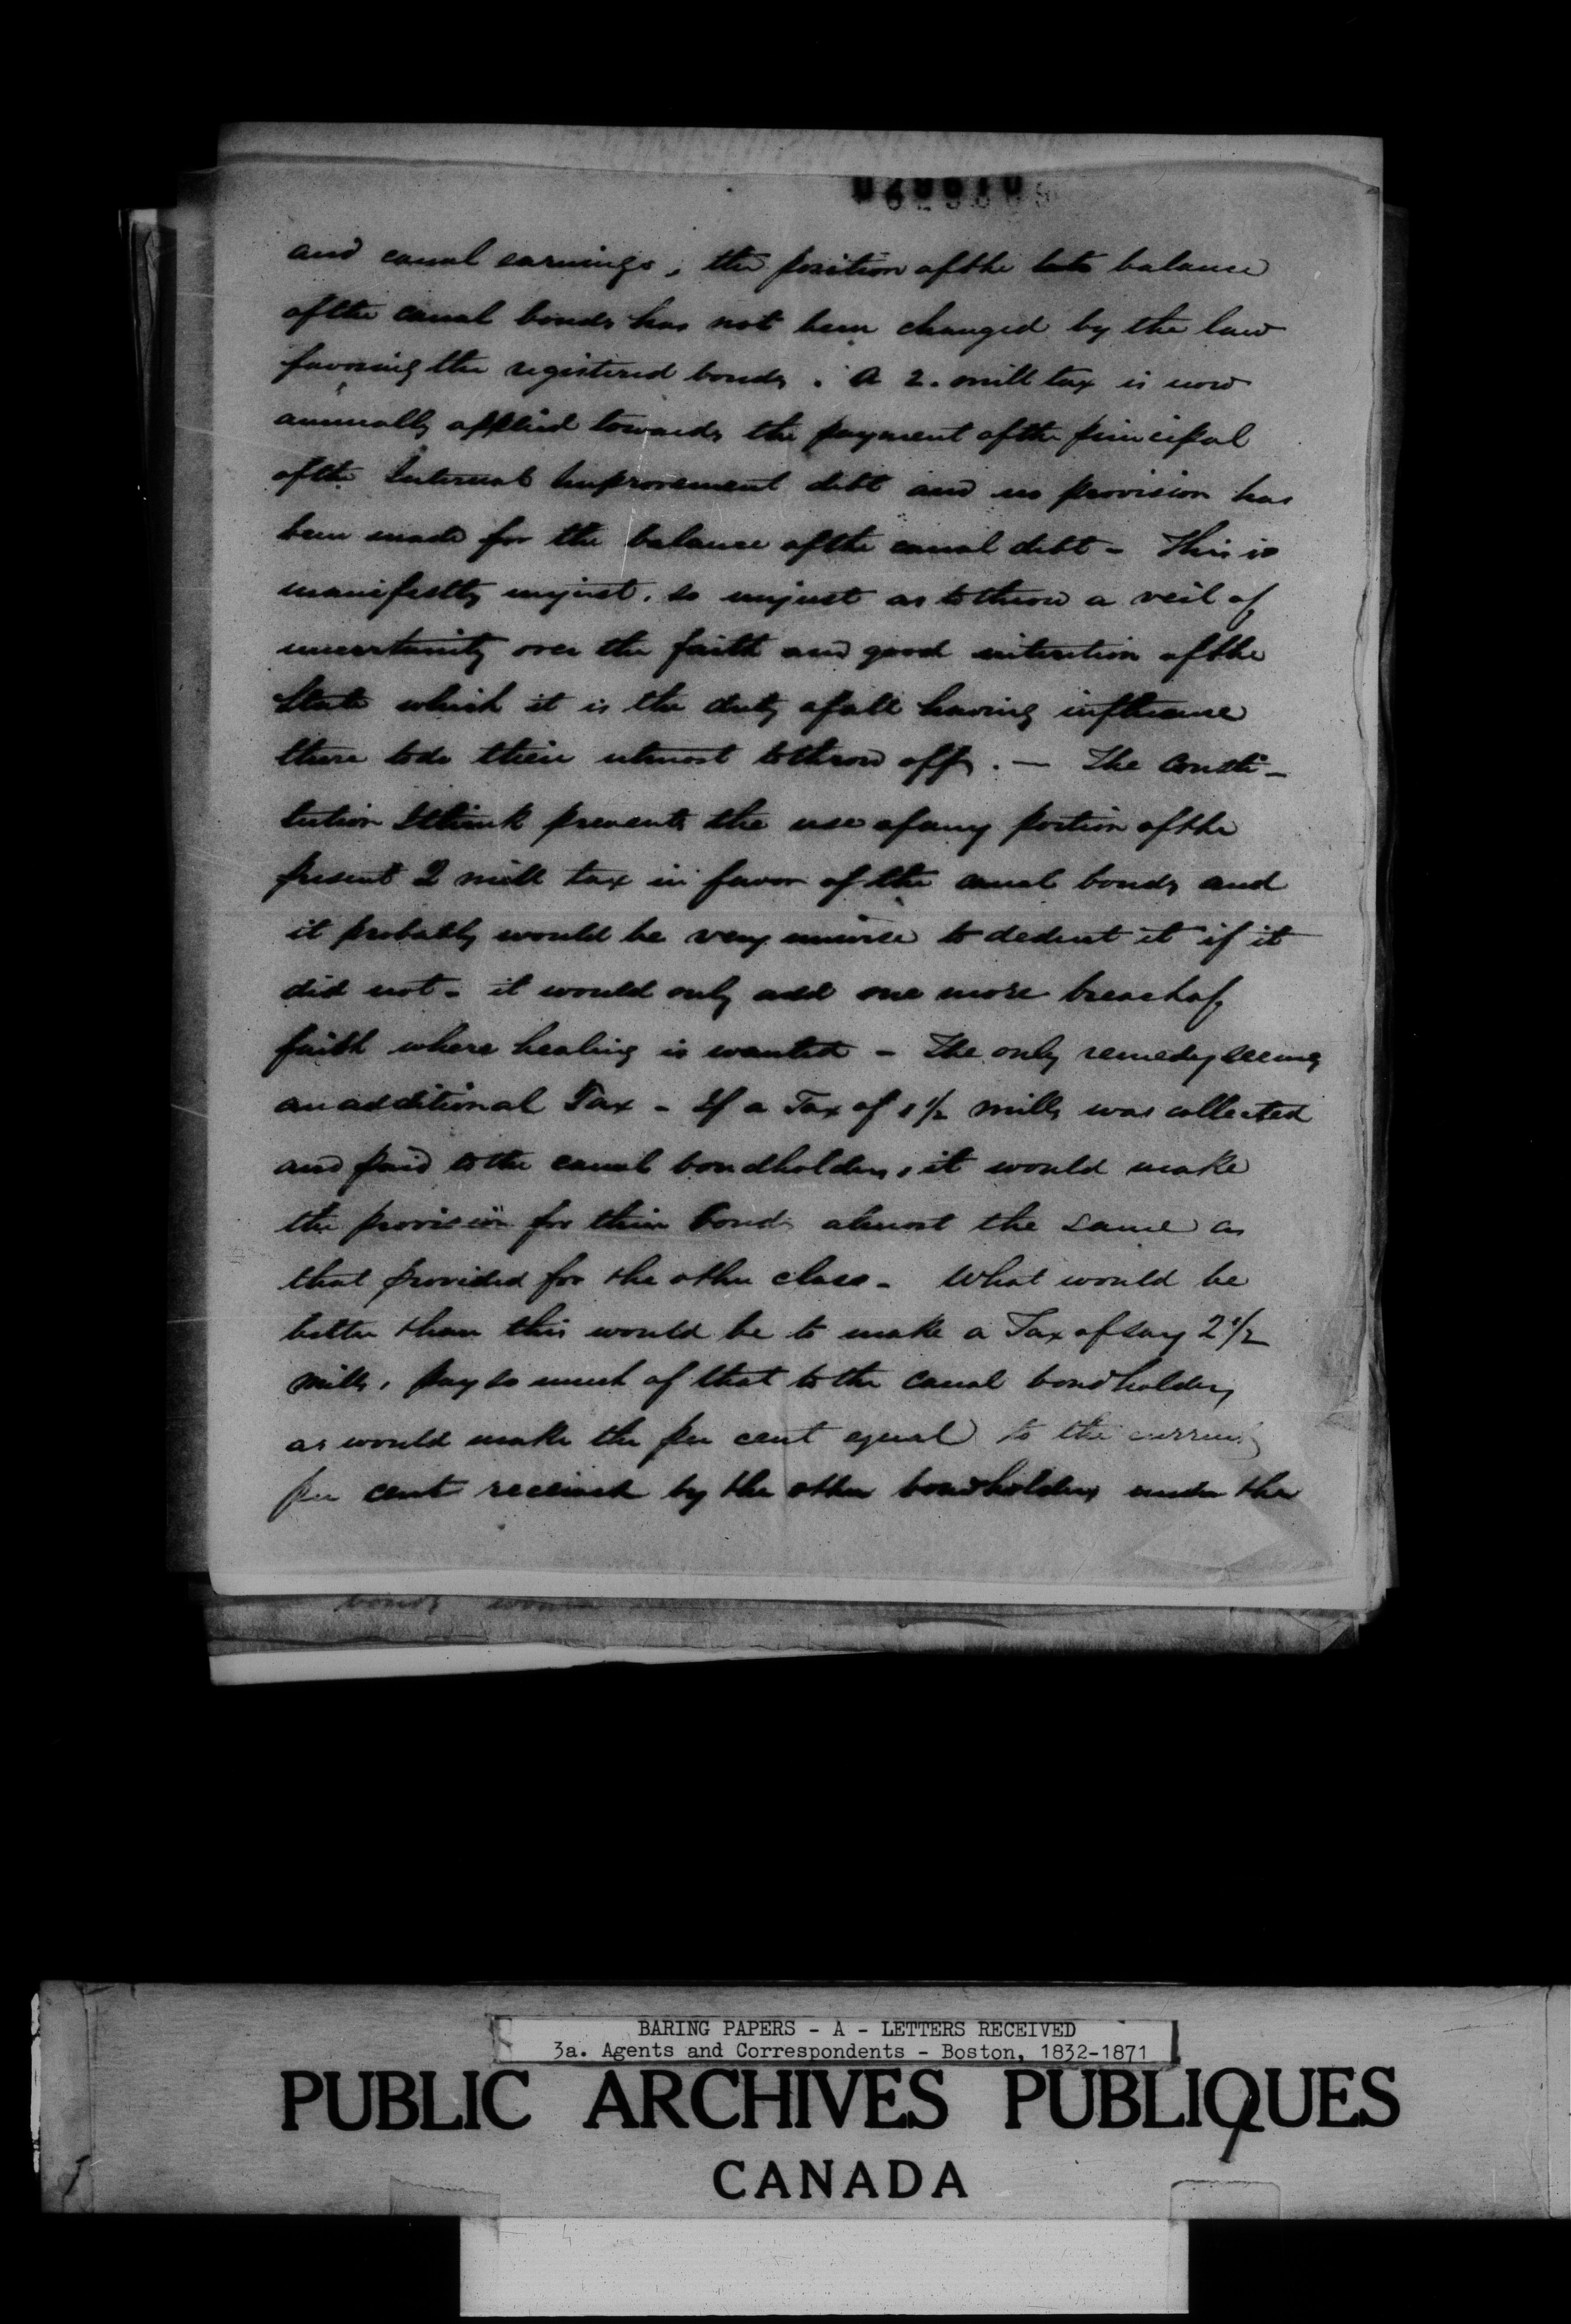 and canal earnings, the position of the balance
of the canal bonds has not been changed by the law
favoring the registered bonds. A 2. mill tax is now
annually applied towards the payment of the principal
of the Internal Improvement debt and no provision has
been made for the balance of the canal debt - This is
manifestly unjust. so unjust as to throw a veil of
uncertainity over the faith and good intention of the
State which it is the duty of all having influence
there to do their utmost to throw off. — The Consti-
tution I think prevents the use of any portion of the
present 2 mill tax in favor of the canal bonds and
it probably would be very unwise to deduct it if it
did not - it would only add one more breach of
faith where healing is wanted - The only remedy seems
an additional Tax - If a Tax of 1 1/2 mills was collected
and paid to the canal bondholders, it would make
the provision for their bonds almost the same as
that provided for the other class - What would be
better than this would be to make a Tax of say 2 1/2
mills, pay so much of that to the canal bondholders
as would make the per cent equal to the current
per cent received by the other bondholders under the
bonds would
BARING PAPERS - A - LETTERS RECEIVED
3a. Agents and Correspondents - Boston, 1832-1871
PUBLIC ARCHIVES PUBLIQUES
CANADA